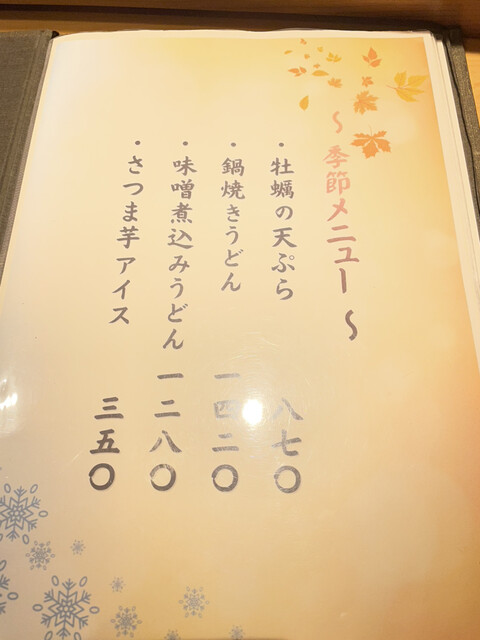 ～季節メニュー～
・牡蠣の天ぷら 八七〇
・鍋焼きうどん 一四二〇
・味噌煮込みうどん 一二八〇
・さつま芋アイス 三五〇